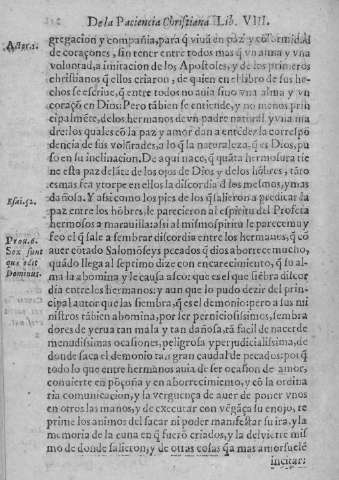 De la Paciencia Christiana Lib. VIII.
gregacion y compañia, para q̃ viuã en paz y cõformidad
de coraçones, sin tener entre todos mas q̃ vn alma y vna
voluntad, a imitacion de los Apostoles, y de los primeros
christianos q̃ ellos criaron, de quien en el libro de sus he-
chos se escriue, q̃ entre todos no auia sino vna alma y vn
coraçõ en Dios: Pero tãbien se entiende, y no menos prin
cipalmẽte, de los hermanos de vn padre natural y vna ma
dre: los quales cõ la paz y amor dan a entẽder la correspõ
dencia de sus volũtades, a lo q̃ la naturaleza, q̃ es Dios, pu
so en su inclinacion. De aqui nace, q̃ quãta hermosura tie
ne esta paz delãte de los ojos de Dios y de los hõbres, tãto
es mas fea y torpe en ellos la discordia d̃ los mesmos, y mas
dañosa. Y assi como los pies de los q̃ salieron a predicar la
paz entre los hõbres, le parecieron al espiritu del Profeta
hermosos a marauilla: assi al mismo spiritu le parece muy
feo el q̃ sale a sembrar discordia entre los hermanos, q̃ cõ
auer cõtado Salomõ seys pecados q̃ dios aborrece mucho,
quãdo llega al septimo dize con encarecimiento, q̃ su al-
ma la abomina y le causa asco: que es el que siẽbra discor
dia entre los hermanos: y aun que lo pudo dezir del prin-
cipal autor que las siembra, q̃ es el demonio: pero a sus mi
nistros tãbien abomina, por ser perniciosissimos, sembra
dores de yerua tan mala y tan dañosa, tã facil de nacer de
menudissimas ocasiones, peligrosa y perjudicialissima, de
donde saca el demonio tan gran caudal de pecados: porq̃
todo lo que entre hermanos auia de ser ocasion de amor,
conuierte en põçoña y en aborrecimiento, y cõ la ordina
ria comunicacion, y la verguença de auer de poner vnos
en otros las manos, y de executar con vẽgãça su enojo, re
prime los animos del sacar ni poder manifestar su ira, y la
memoria de la cuna en q̃ fuerõ criados, y la del vientre mis
mo de donde salieron, y de otras cosas q̃ mas amor suelẽ
incitar:
Actor. 1.
Esai. 52.
Prou. 6.
Sex sunt
quæ odit
Dominus.